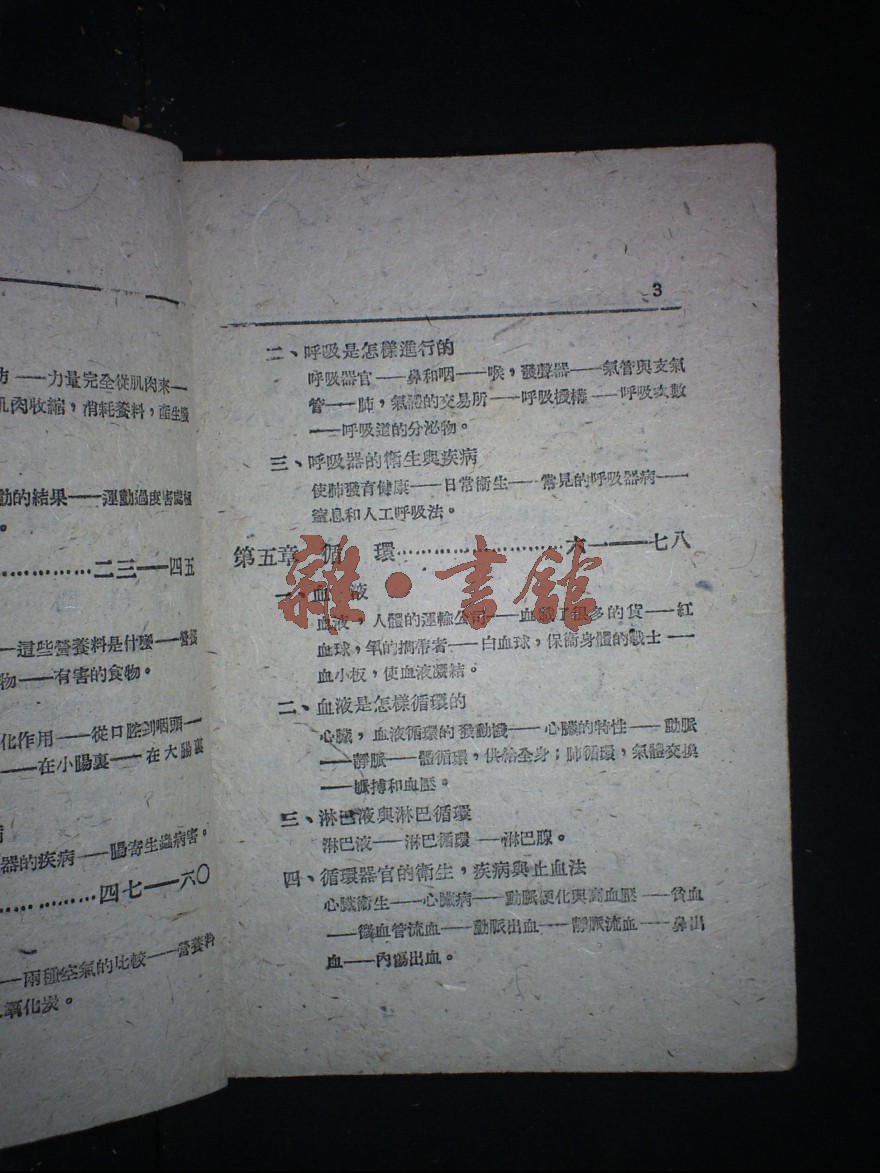 方——力量完全從肌肉來—
肌肉收縮，消耗養料，產生
動的結果——運動過度害處
。
…………二三——四五
—這些營養料是什麼——營養
物——有害的食物。
化作用——從口腔到咽頭—
——在小腸裏——在大腸裏
器的疾病——腸寄生蟲病害。
…………四七——六〇
——兩種空氣的比較——營養料
氧化炭。
3
二、呼吸是怎樣進行的
呼吸器官——鼻和咽——喉，發聲器——氣管與支氣
管——肺，氣體的交易所——呼吸機構——呼吸次數
——呼吸道的分泌物。
三、呼吸器的衛生與疾病
使肺發育健康——日常衛生——常見的呼吸器病——
窒息和人工呼吸法。
第五章 循 環…………………………六一——七八
一、血 液
血液，人體的運輸公司——血載了很多的貨——紅
血球，氧的攜帶者——白血球，保衛身體的戰士——
血小板，使血液凝結。
二、血液是怎樣循環的
心臟，血液循環的發動機——心臟的特性——動脈
——靜脈——體循環，供給全身；肺循環，氣體交換
——脈搏和血壓。
三、淋巴液與淋巴循環
淋巴液——淋巴循環——淋巴腺。
四、循環器官的衛生，疾病與止血法
心臟衛生——心臟病——動脈硬化與高血壓——貧血
——微血管流血——動脈出血——靜脈流血——鼻出
血——內傷出血。
雜·書館